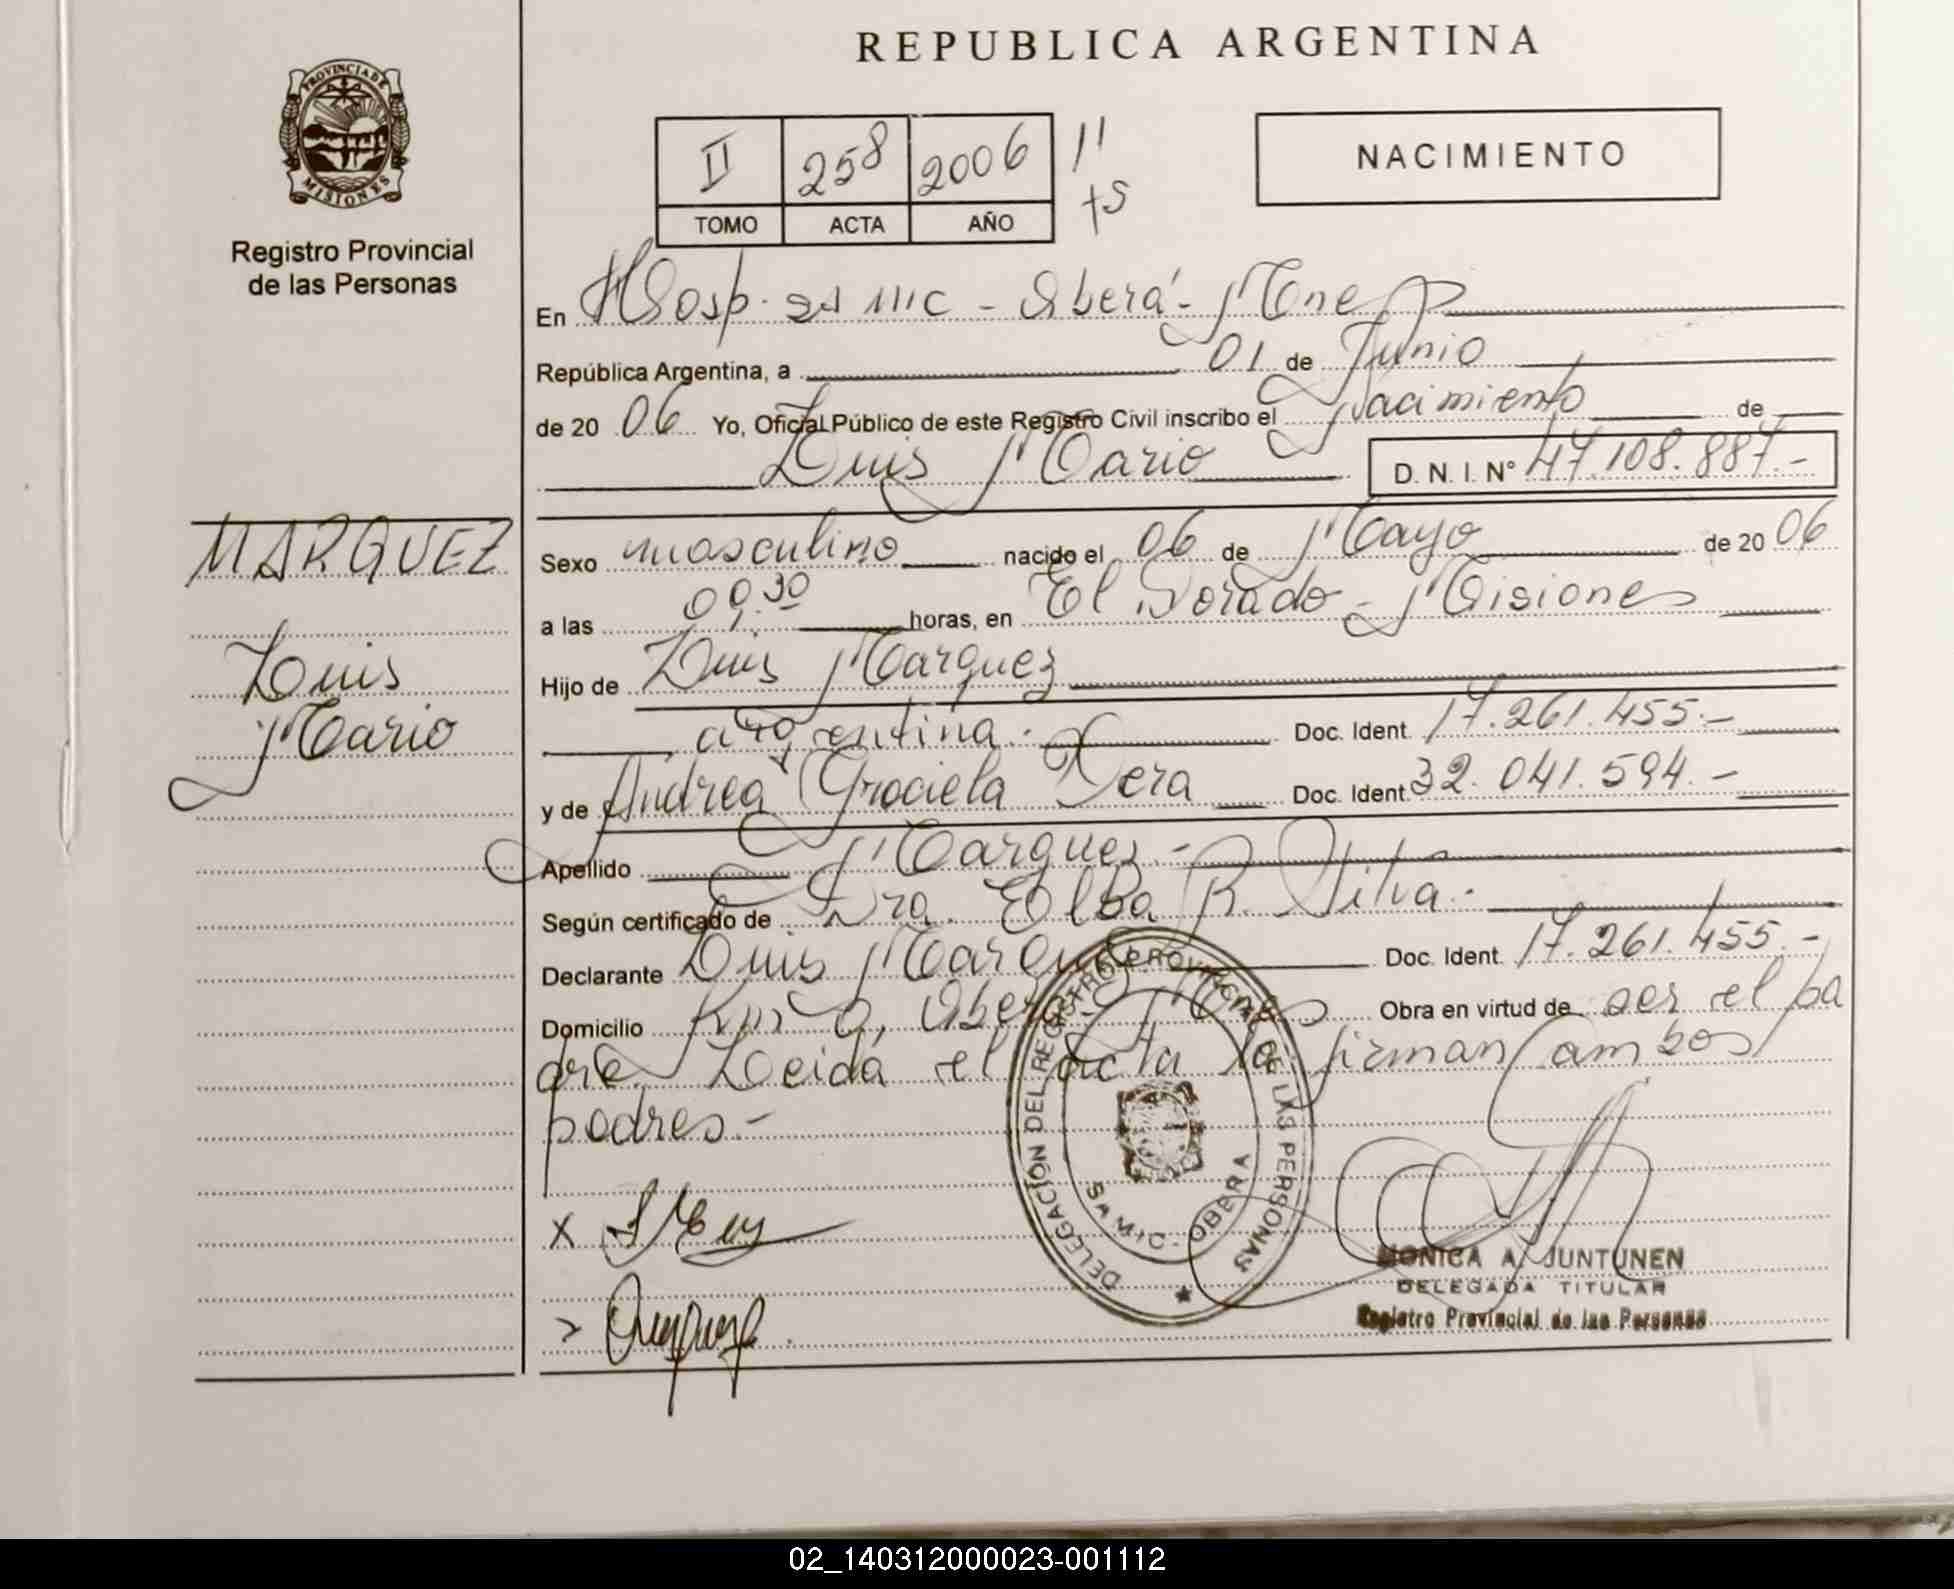 REPUBLICA ARGENTINA
PROVINCIA DE
MISIONES
Registro Provincial
de las Personas
II 258 2006 11
TOMO ACTA AÑO +S
NACIMIENTO
En Hosp. SAMIC - Oberá - Mnes
República Argentina, a 01 de Junio
de 20 06 Yo, Oficial Público de este Registro Civil inscribo el Nacimiento de
Luis Mario D. N. I. N° 47.108.887.-
MARQUEZ
Luis
Mario
Sexo masculino nacido el 06 de Mayo de 20 06
a las 09.30 horas, en El Dorado - Misiones
Hijo de Luis Marquez
argentina.- Doc. Ident. 17.261.455.-
y de Andrea Graciela Vera Doc. Ident. 32.041.594.-
Apellido Marquez.-
Según certificado de Dra. Elba R. Silva.-
Declarante Luis Marquez Doc. Ident. 17.261.455.-
Domicilio Km 0, Oberá Mnes Obra en virtud de ser el pa
dre. Leida el acta la firman ambos
padres.-
X
DELEGACIÓN DEL REGISTRO PROVINCIAL DE LAS PERSONAS
SAMIC - OBERA
MONICA A. JUNTUNEN
DELEGADA TITULAR
Registro Provincial de las Personas
02_140312000023-001112